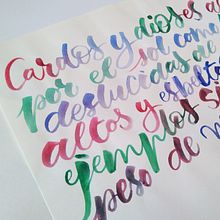 Cardos y dioses a
por el sol como
deslucidas al
altos y esbelt
ejemplos si
peso de